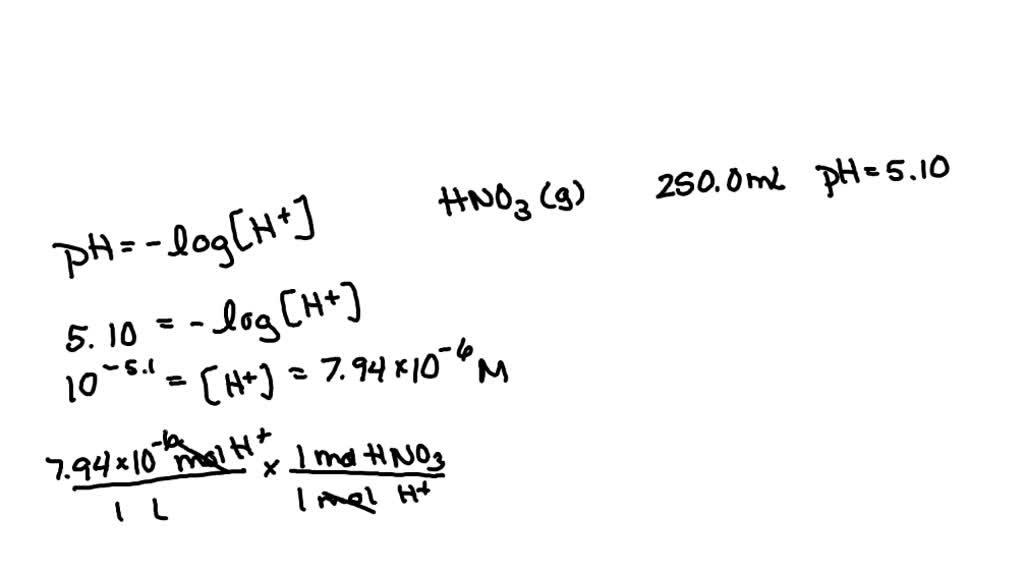 HNO₃(g) 250.0 mL pH = 5.10
pH = -log[H⁺]
5.10 = -log[H⁺]
10⁻⁵·¹ = [H⁺] = 7.94 × 10⁻⁶ M
7.94 × 10⁻⁶ mol H⁺ / 1 L × 1 mol HNO₃ / 1 mol H⁺